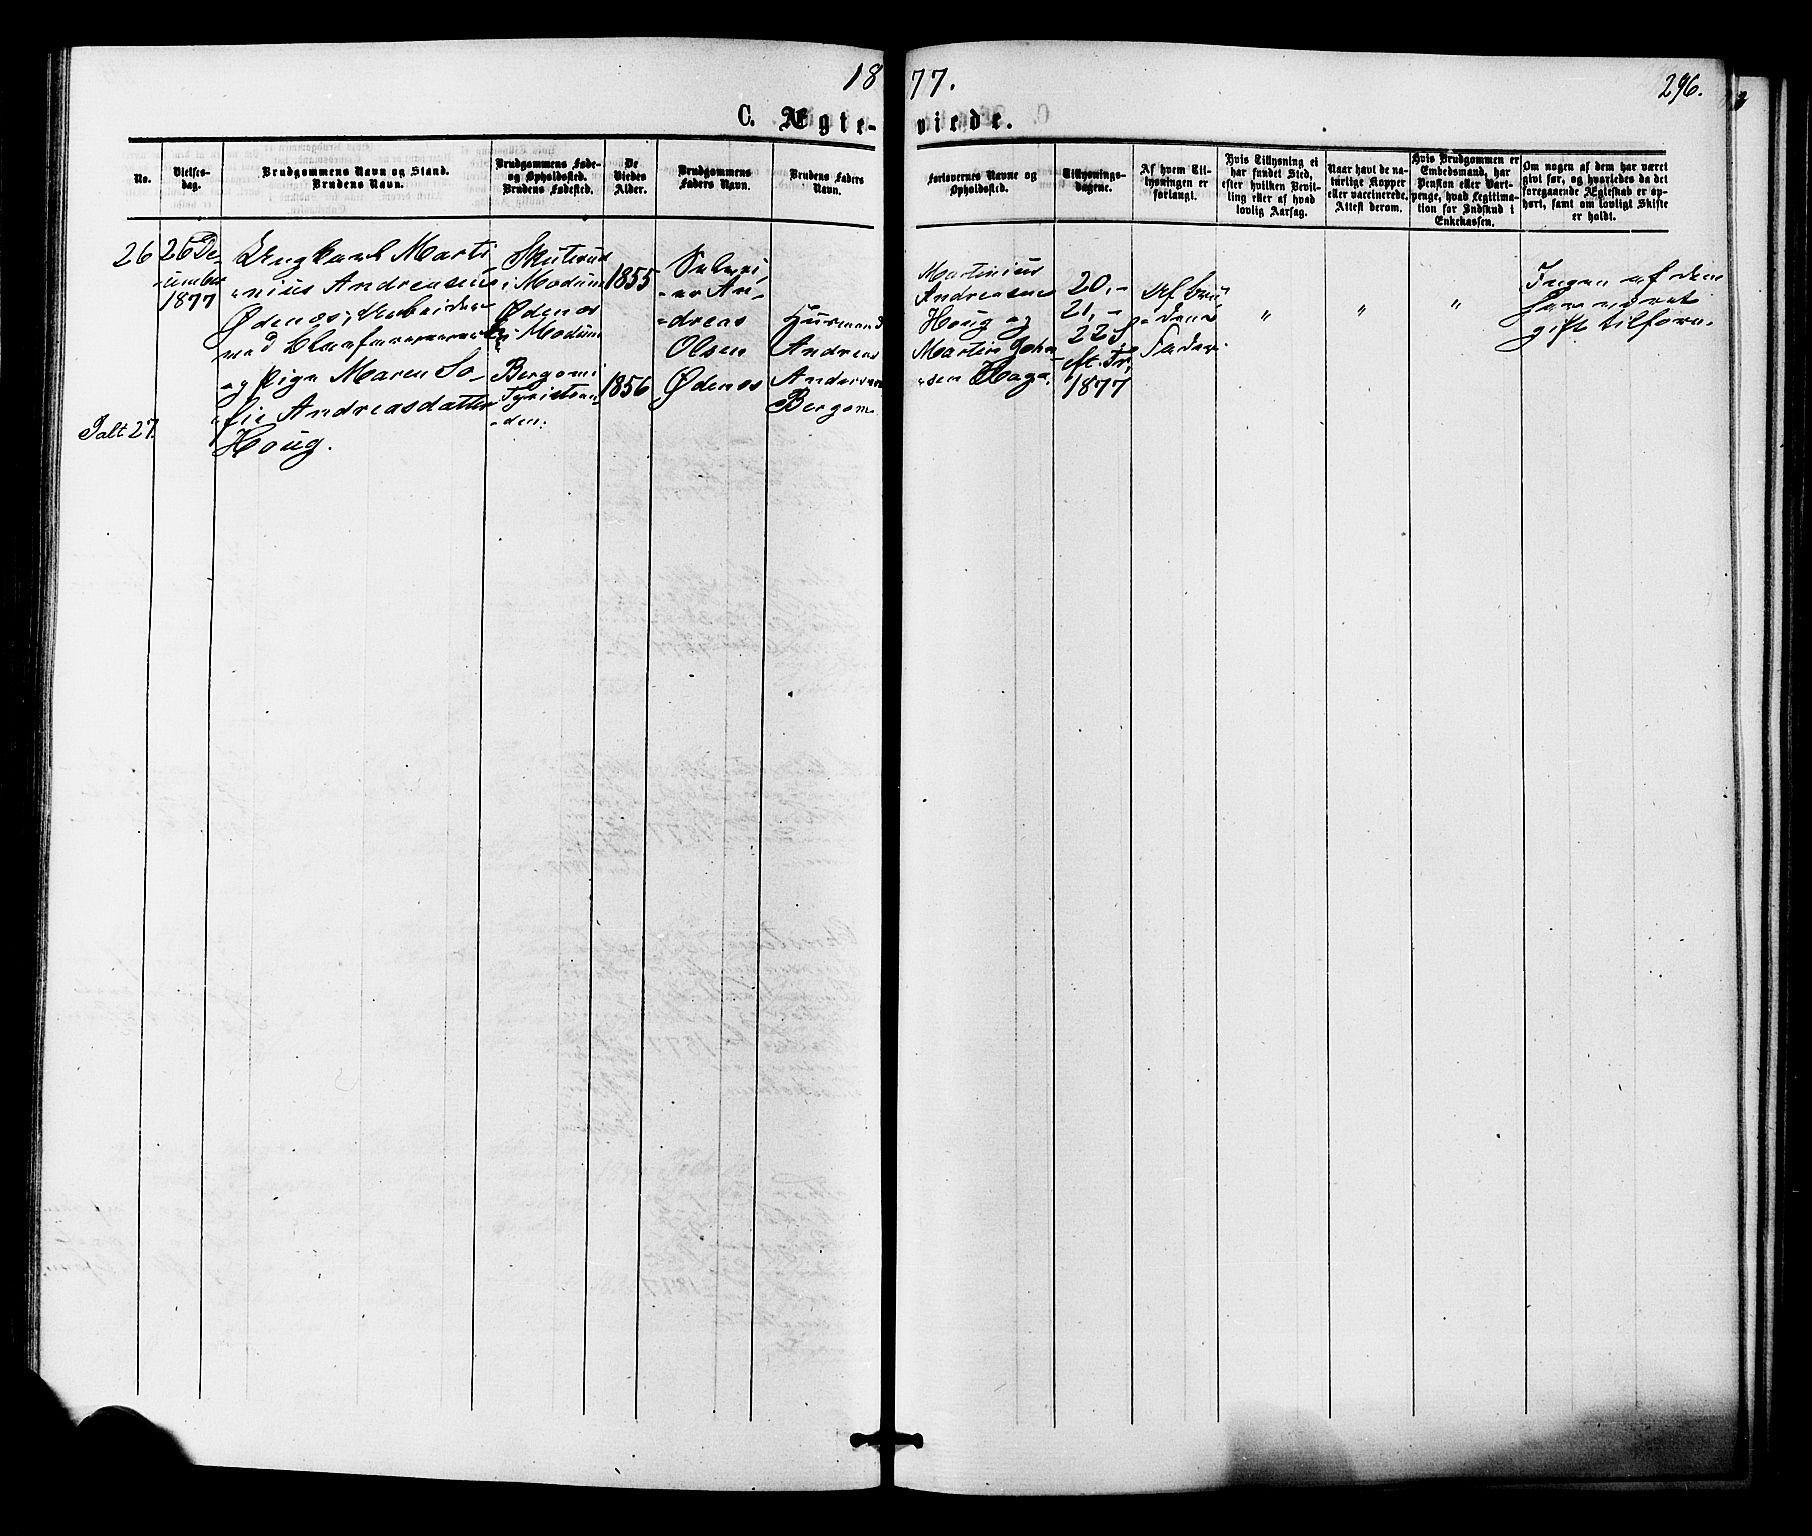 1877.
296.
C. Ægteviede.
No.
Vielses-
dag.
Brudgommens Navn og Stand.
Brudens Navn.
Brudgommens Føde-
og Opholdssted.
Brudens Fødested.
De
Viedes
Alder.
Brudgommens
Faders Navn.
Brudens Faders
Navn.
Forlovernes Navne og
Opholdssted.
Tillysnings-
dagene.
Af hvem Til-
lysningen er
forlangt.
Hvis Tillysning ei
har fundet Sted,
efter hvilken Bevil-
ling eller af hvad
lovlig Aarsag.
Naar havt de na-
turlige Kopper
eller vaccinerede.
Attest derom.
Hvis Brudgommen er
Embedsmand, har
Pension eller Vart-
penge, hvad Legitima-
tion for Indskud i
Enkekassen.
Om nogen af dem har været
givt før, og hvorledes da det
foregaaende Ægteskab er op-
hørt, samt om lovligt Skifte
er holdt.
26
26 De-
cember
1877
Ungkarl Marti
nius Andreasen
Ødenos, Arbeider
ved Blaafarveværket
og Pige Maren So-
fie Andreasdatter
Houg.
Skuterud
i Modum
Ødenos
i Modum
Bergom i
Tyristran-
den.
1855
1856
Andreas
Olsen
Ødenos
Husmand
Andreas
Andersen
Bergom
Martinius
Andreasen
Houg og
Martin Johan-
sen Hage.
20,-
21,-
22 S.
eft. Tr.
1877
Af Bru-
dens
Fader.
"
"
"
Ingen af dem
har været
gift tilforn.
Ialt 27.